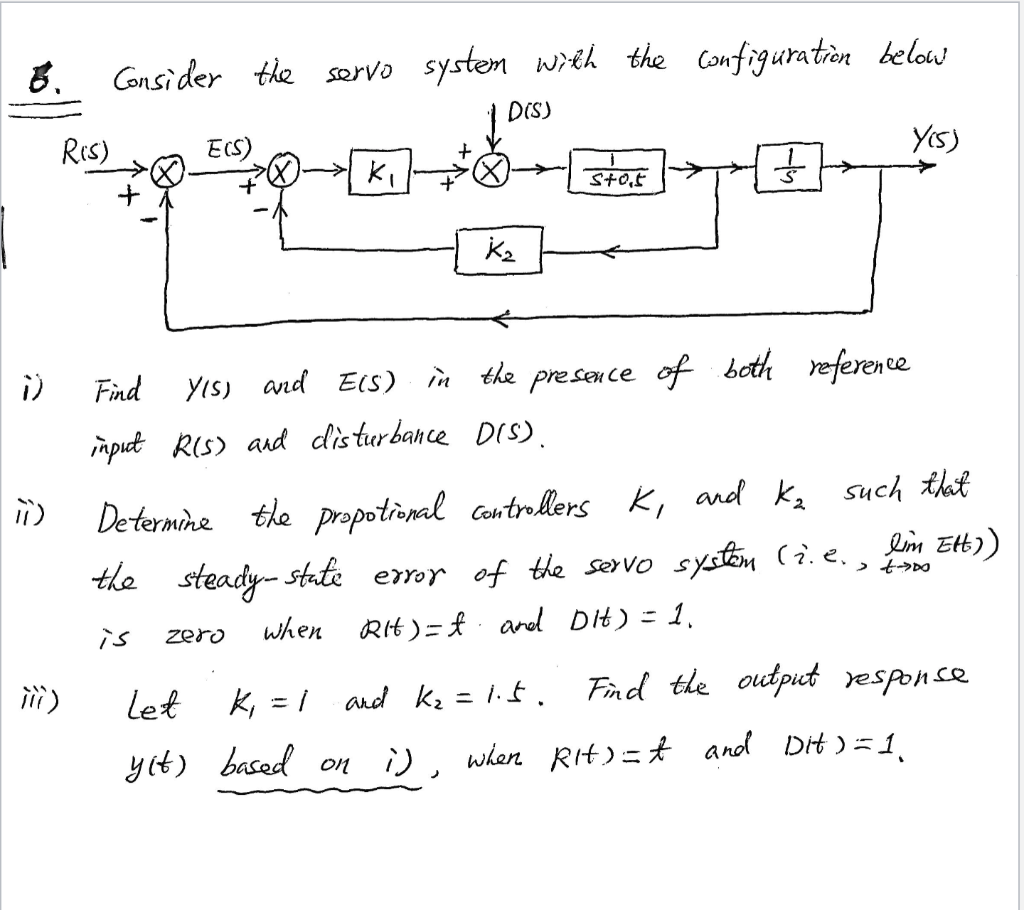 8. Consider the servo system with the configuration below
D(S)
R(S) E(S) Y(S)
+ + - + - + K1 1/S+0.5 1/S
K2
i) Find Y(S) and E(S) in the presence of both reference
input R(S) and disturbance D(S).
ii) Determine the propotional controllers K1 and K2 such that
the steady-state error of the servo system (i.e., lim t→∞ E(t))
is zero when R(t) = t and D(t) = 1.
iii) Let K1 = 1 and K2 = 1.5. Find the output response
y(t) based on i), when R(t) = t and D(t) = 1.